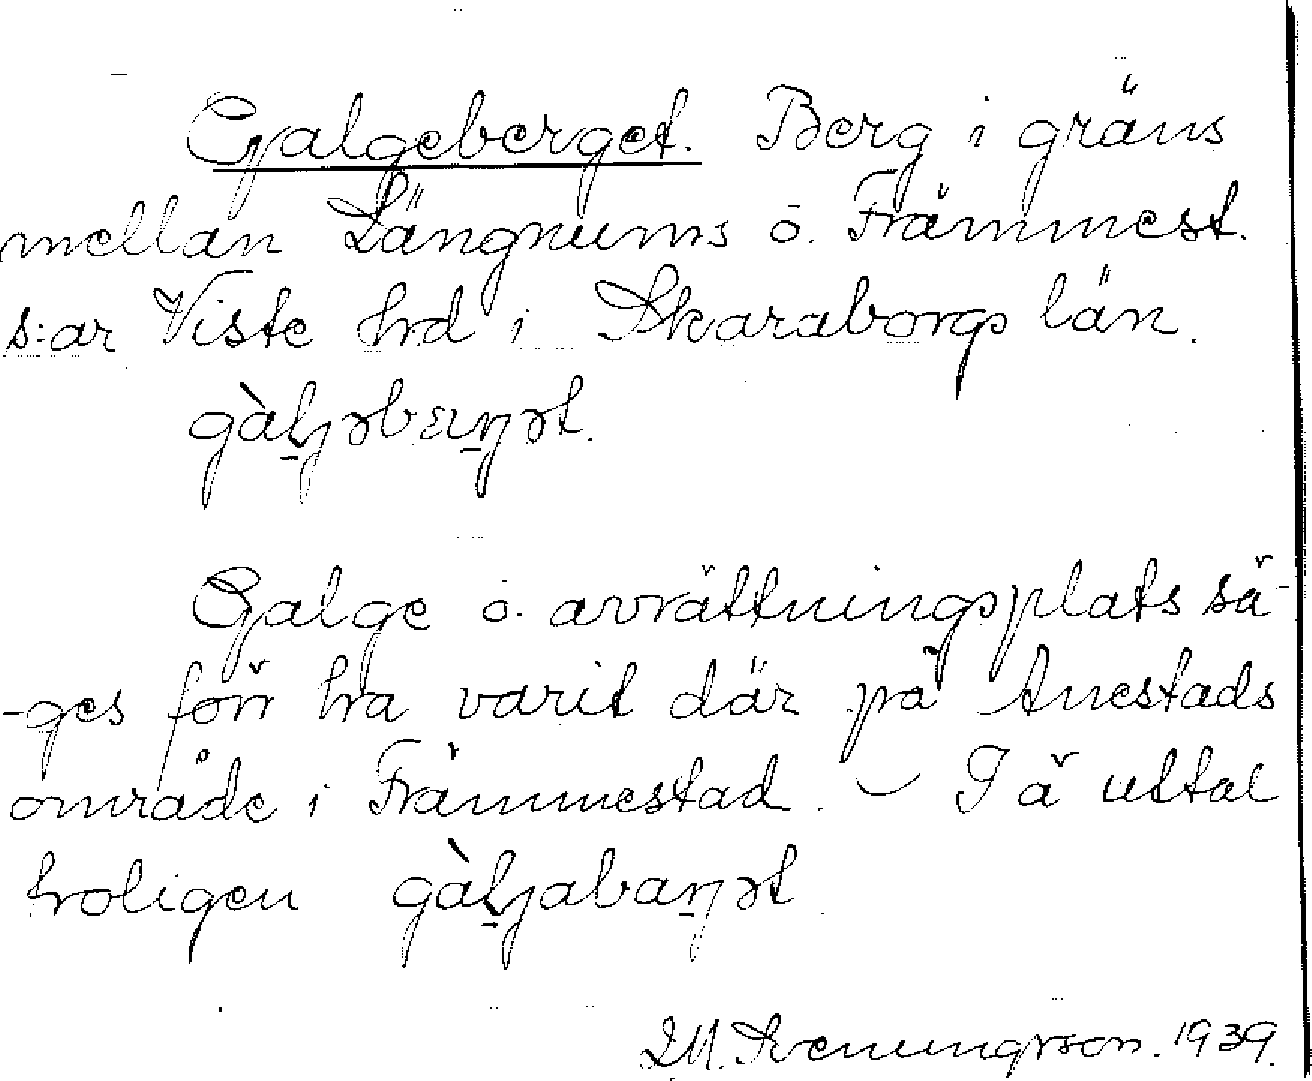 Galgeberget. Berg i gräns
mellan Längnums o. Främmest.
s:ar Viste hrd i Skaraborgs län.
Galge o. avrättningsplats sä-
-ges förr ha varit där på Anestads
område i Främmestad. – I ä uttal
troligen
M. Svenungsson. 1939.